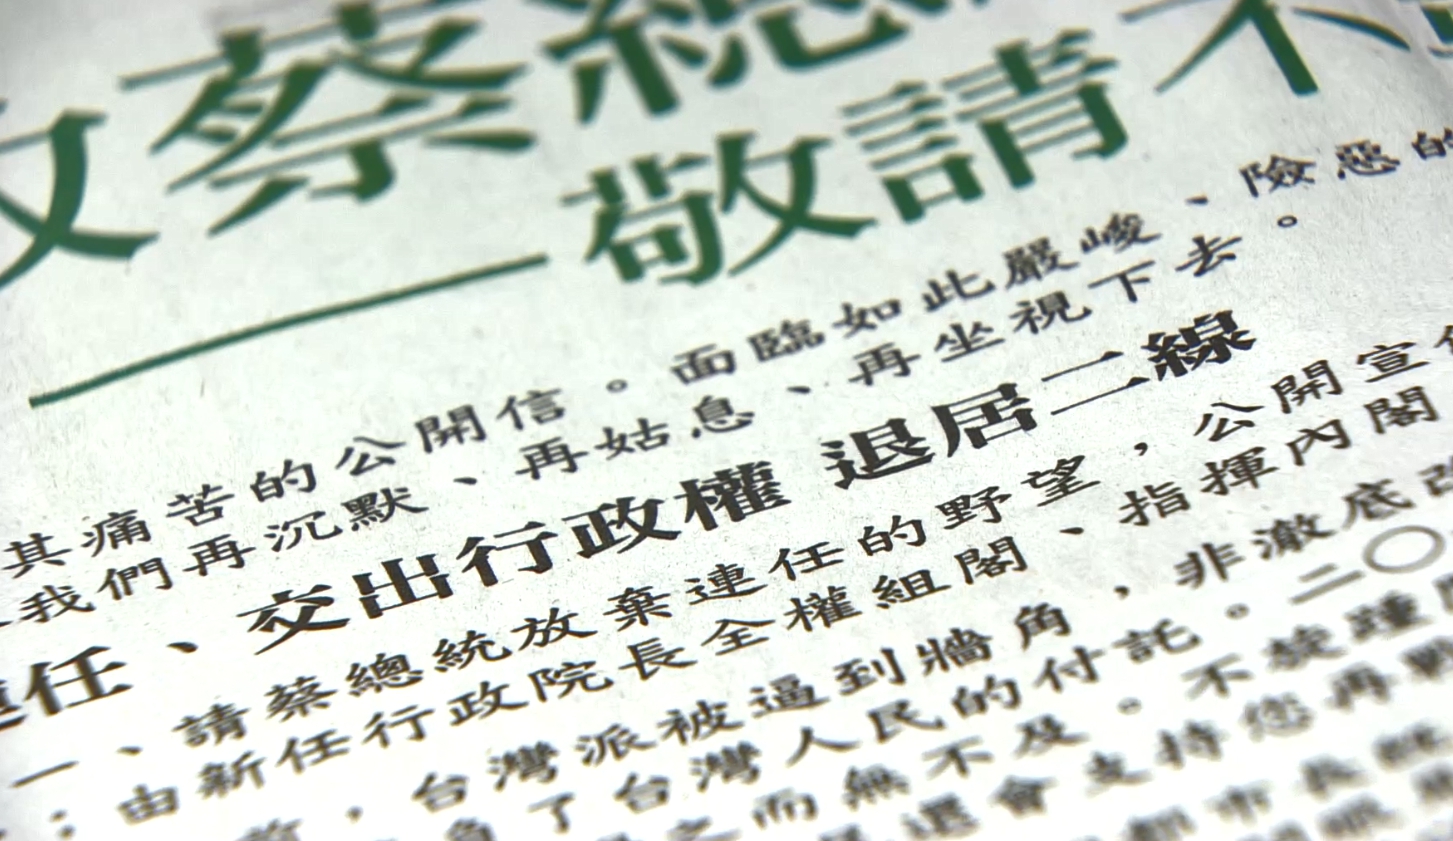 致蔡總
敬請不
其痛苦的公開信。面臨如此嚴峻、險惡的
我們再沉默、再姑息、再坐視下去。
連任、交出行政權 退居二線
一、請蔡總統放棄連任的野望，公開宣
；由新任行政院長全權組閣、指揮內閣
，台灣派被逼到牆角，非澈底改
負了台灣人民的付託。二〇
之而無不及。不旋踵
還會支持您再戰